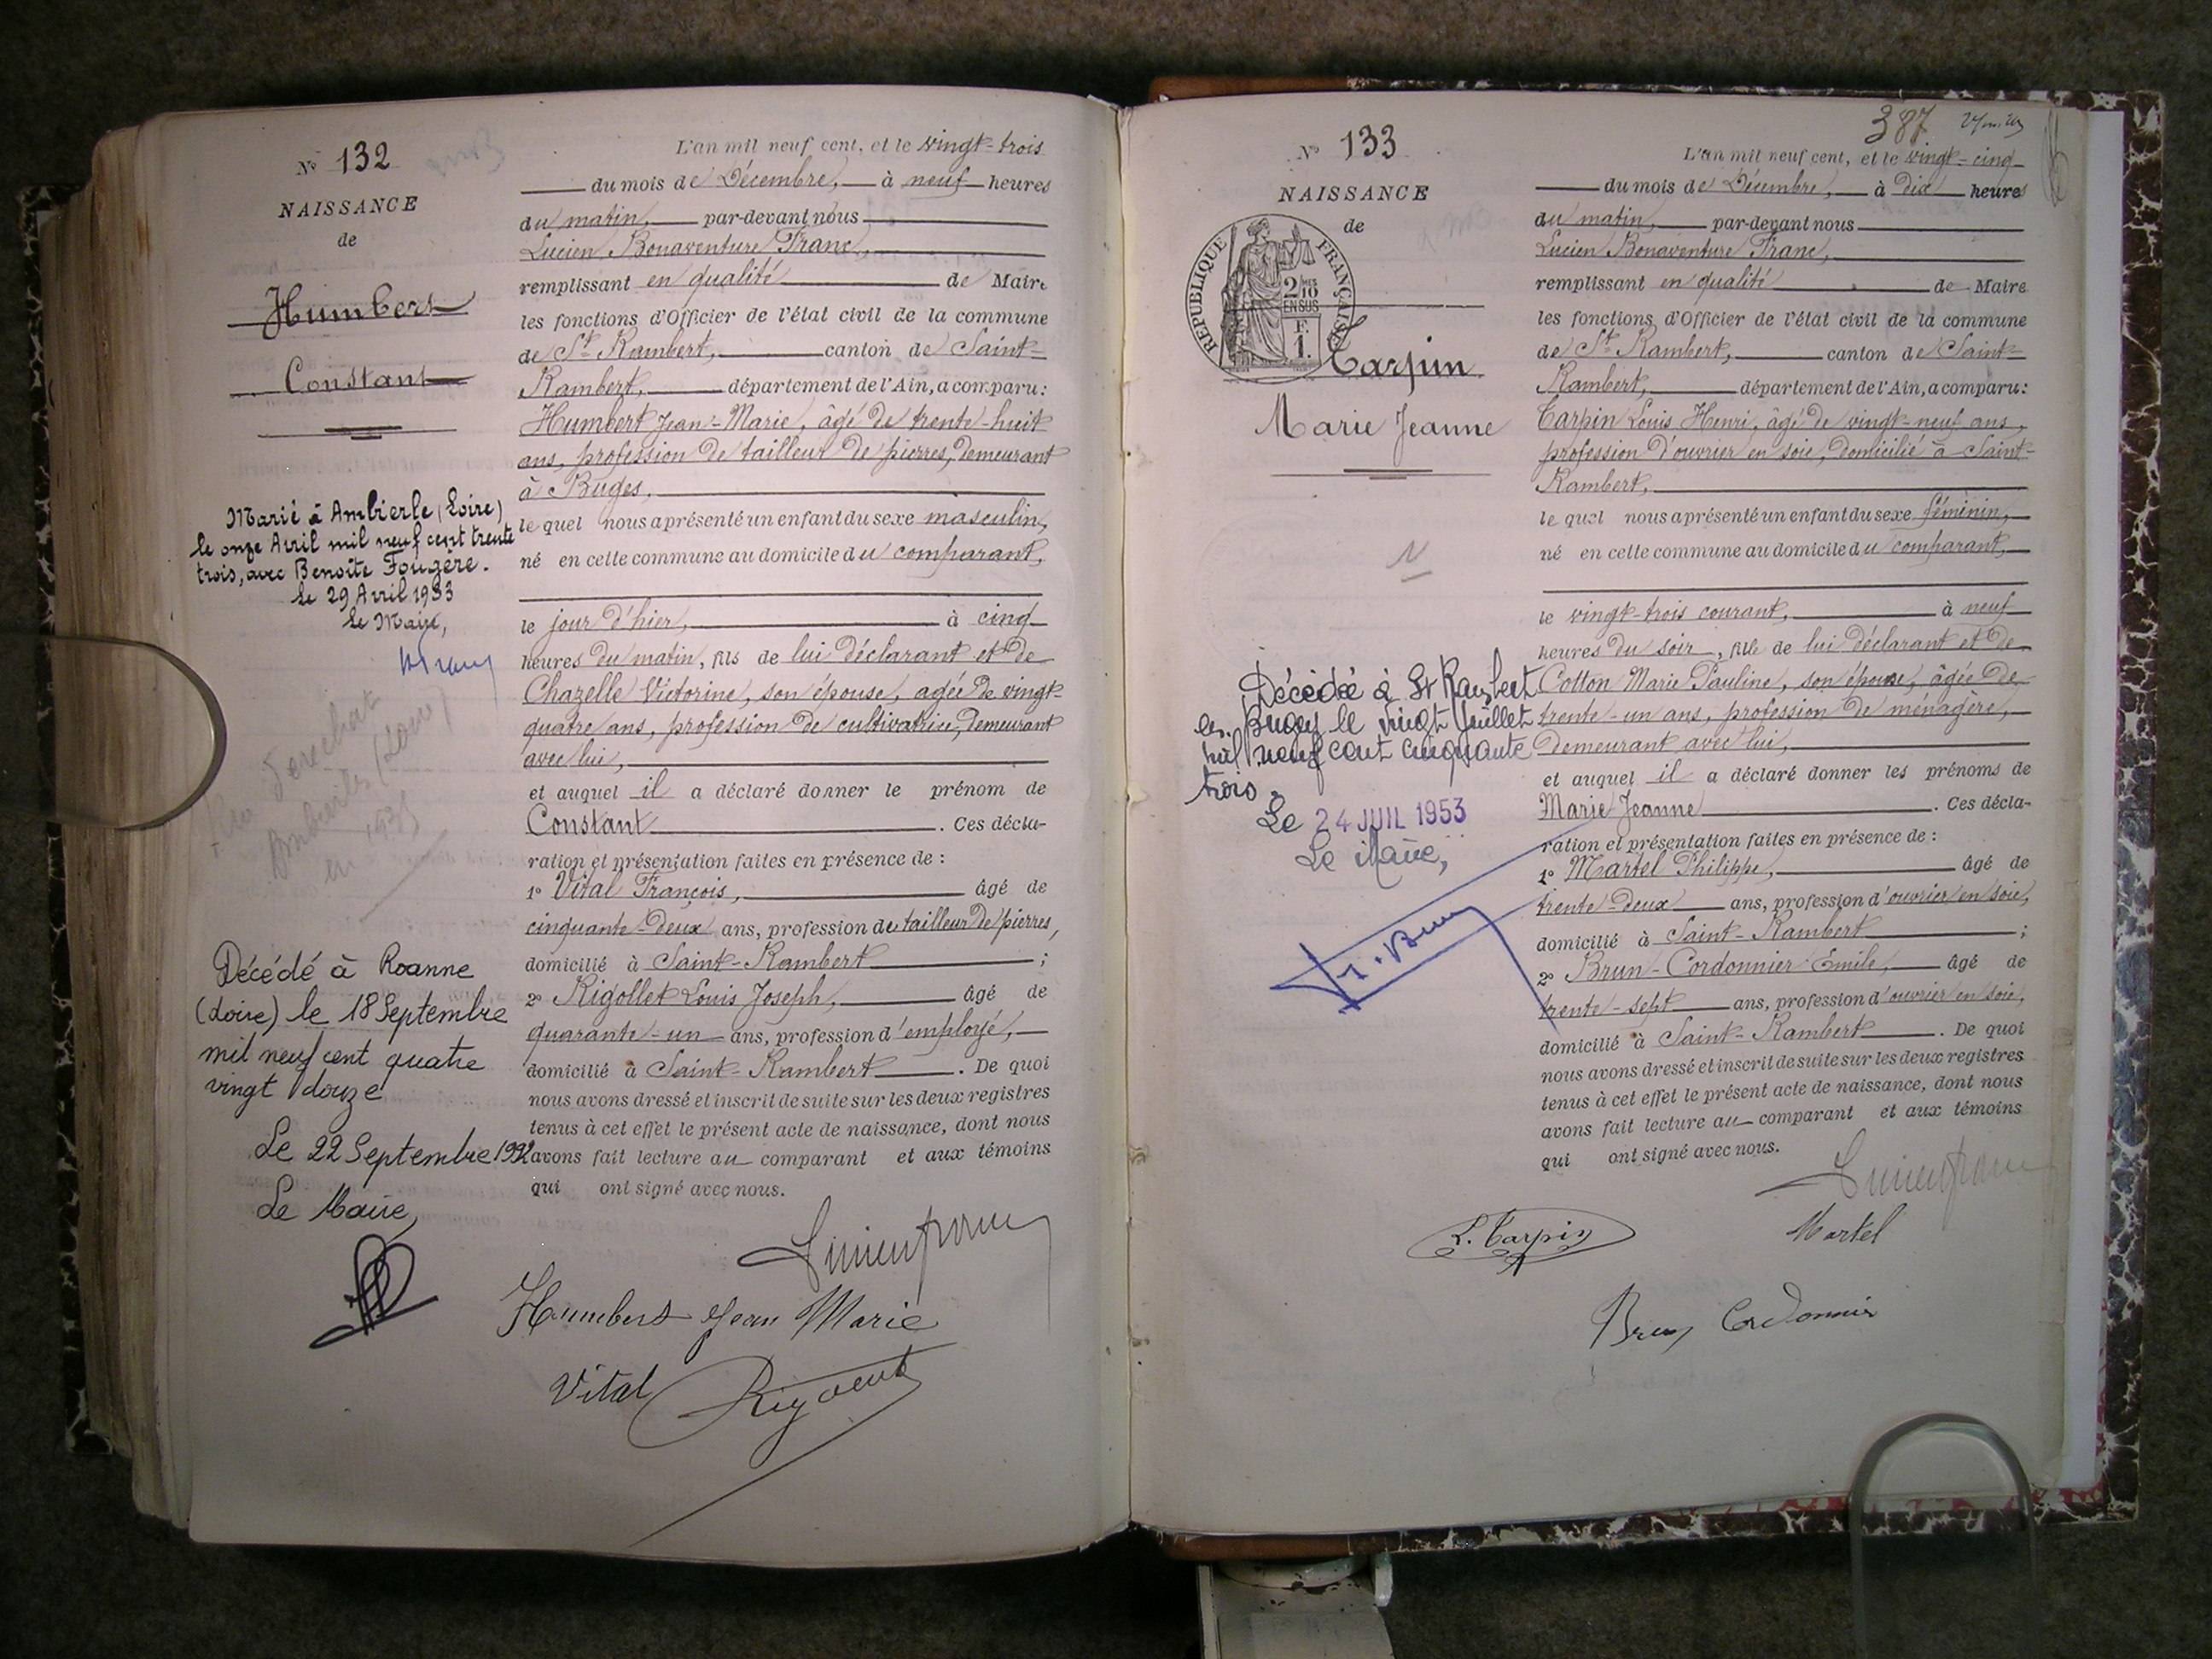 N° 132
NAISSANCE
de
Humbert
Constant
Marié à Ambierle (Loire)
le onze Avril mil neuf cent trente
trois, avec Benoîte Fougère.
le 29 Avril 1933
Le Maire,
Décédé à Roanne
(Loire) le 18 Septembre
mil neuf cent quatre
vingt douze
Le 22 Septembre 1992
Le Maire,
L'an mil neuf cent, et le vingt-trois
du mois de Décembre, à neuf heures
du matin, par-devant nous
Lucien Bonaventure Franc,
remplissant en qualité de Maire
les fonctions d'Officier de l'état civil de la commune
de St Rambert, canton de Saint-
Rambert, département de l'Ain, a comparu:
Humbert Jean-Marie, âgé de trente-huit
ans, profession de tailleur de pierres, demeurant
à Buges,
le quel nous a présenté un enfant du sexe masculin,
né en cette commune au domicile du comparant,
le jour d'hier, à cinq
heures du matin, fils de lui déclarant et de
Chazelle Victorine, son épouse, agée de vingt-
quatre ans, profession de cultivatrice, demeurant
avec lui,
et auquel il a déclaré donner le prénom de
Constant. Ces décla-
ration et présentation faites en présence de :
1° Vital François, âgé de
cinquante-deux ans, profession de tailleur de pierres,
domicilié à Saint-Rambert ;
2° Rigollet Louis Joseph, âgé de
quarante-un ans, profession d'employé,
domicilié à Saint-Rambert. De quoi
nous avons dressé et inscrit de suite sur les deux registres
tenus à cet effet le présent acte de naissance, dont nous
avons fait lecture au comparant et aux témoins
qui ont signé avec nous.
Lucien franc
Humbert Jean Marie
Vital
387
N° 133
NAISSANCE
de
REPUBLIQUE FRANÇAISE
2/10
EN SUS
F.
1.
Carpin
Marie Jeanne
Décédée à St Rambert
en Bugey le vingt juillet
mil neuf cent cinquante
trois.
Le 24 JUIL 1953
Le Maire,
L'an mil neuf cent, et le vingt-cinq
du mois de Décembre, à dix heures
du matin, par-devant nous
Lucien Bonaventure Franc,
remplissant en qualité de Maire
les fonctions d'Officier de l'état civil de la commune
de St Rambert, canton de Saint-
Rambert, département de l'Ain, a comparu:
Carpin Louis Henri, âgé de vingt-neuf ans,
profession d'ouvrier en soie, domicilié à Saint-
Rambert,
le quel nous a présenté un enfant du sexe féminin,
né en cette commune au domicile du comparant,
le vingt-trois courant, à neuf
heures du soir, fille de lui déclarant et de
Cotton Marie Pauline, son épouse, âgée de
trente-un ans, profession de ménagère,
demeurant avec lui,
et auquel il a déclaré donner les prénoms de
Marie Jeanne. Ces décla-
ration et présentation faites en présence de :
1° Martel Philippe, âgé de
trente-deux ans, profession d'ouvrier en soie,
domicilié à Saint-Rambert ;
2° Brun-Cordonnier Emile, âgé de
trente-sept ans, profession d'ouvrier en soie,
domicilié à Saint-Rambert. De quoi
nous avons dressé et inscrit de suite sur les deux registres
tenus à cet effet le présent acte de naissance, dont nous
avons fait lecture au comparant et aux témoins
qui ont signé avec nous.
Lucien franc
L. Carpin
Martel
Brun Cordonnier